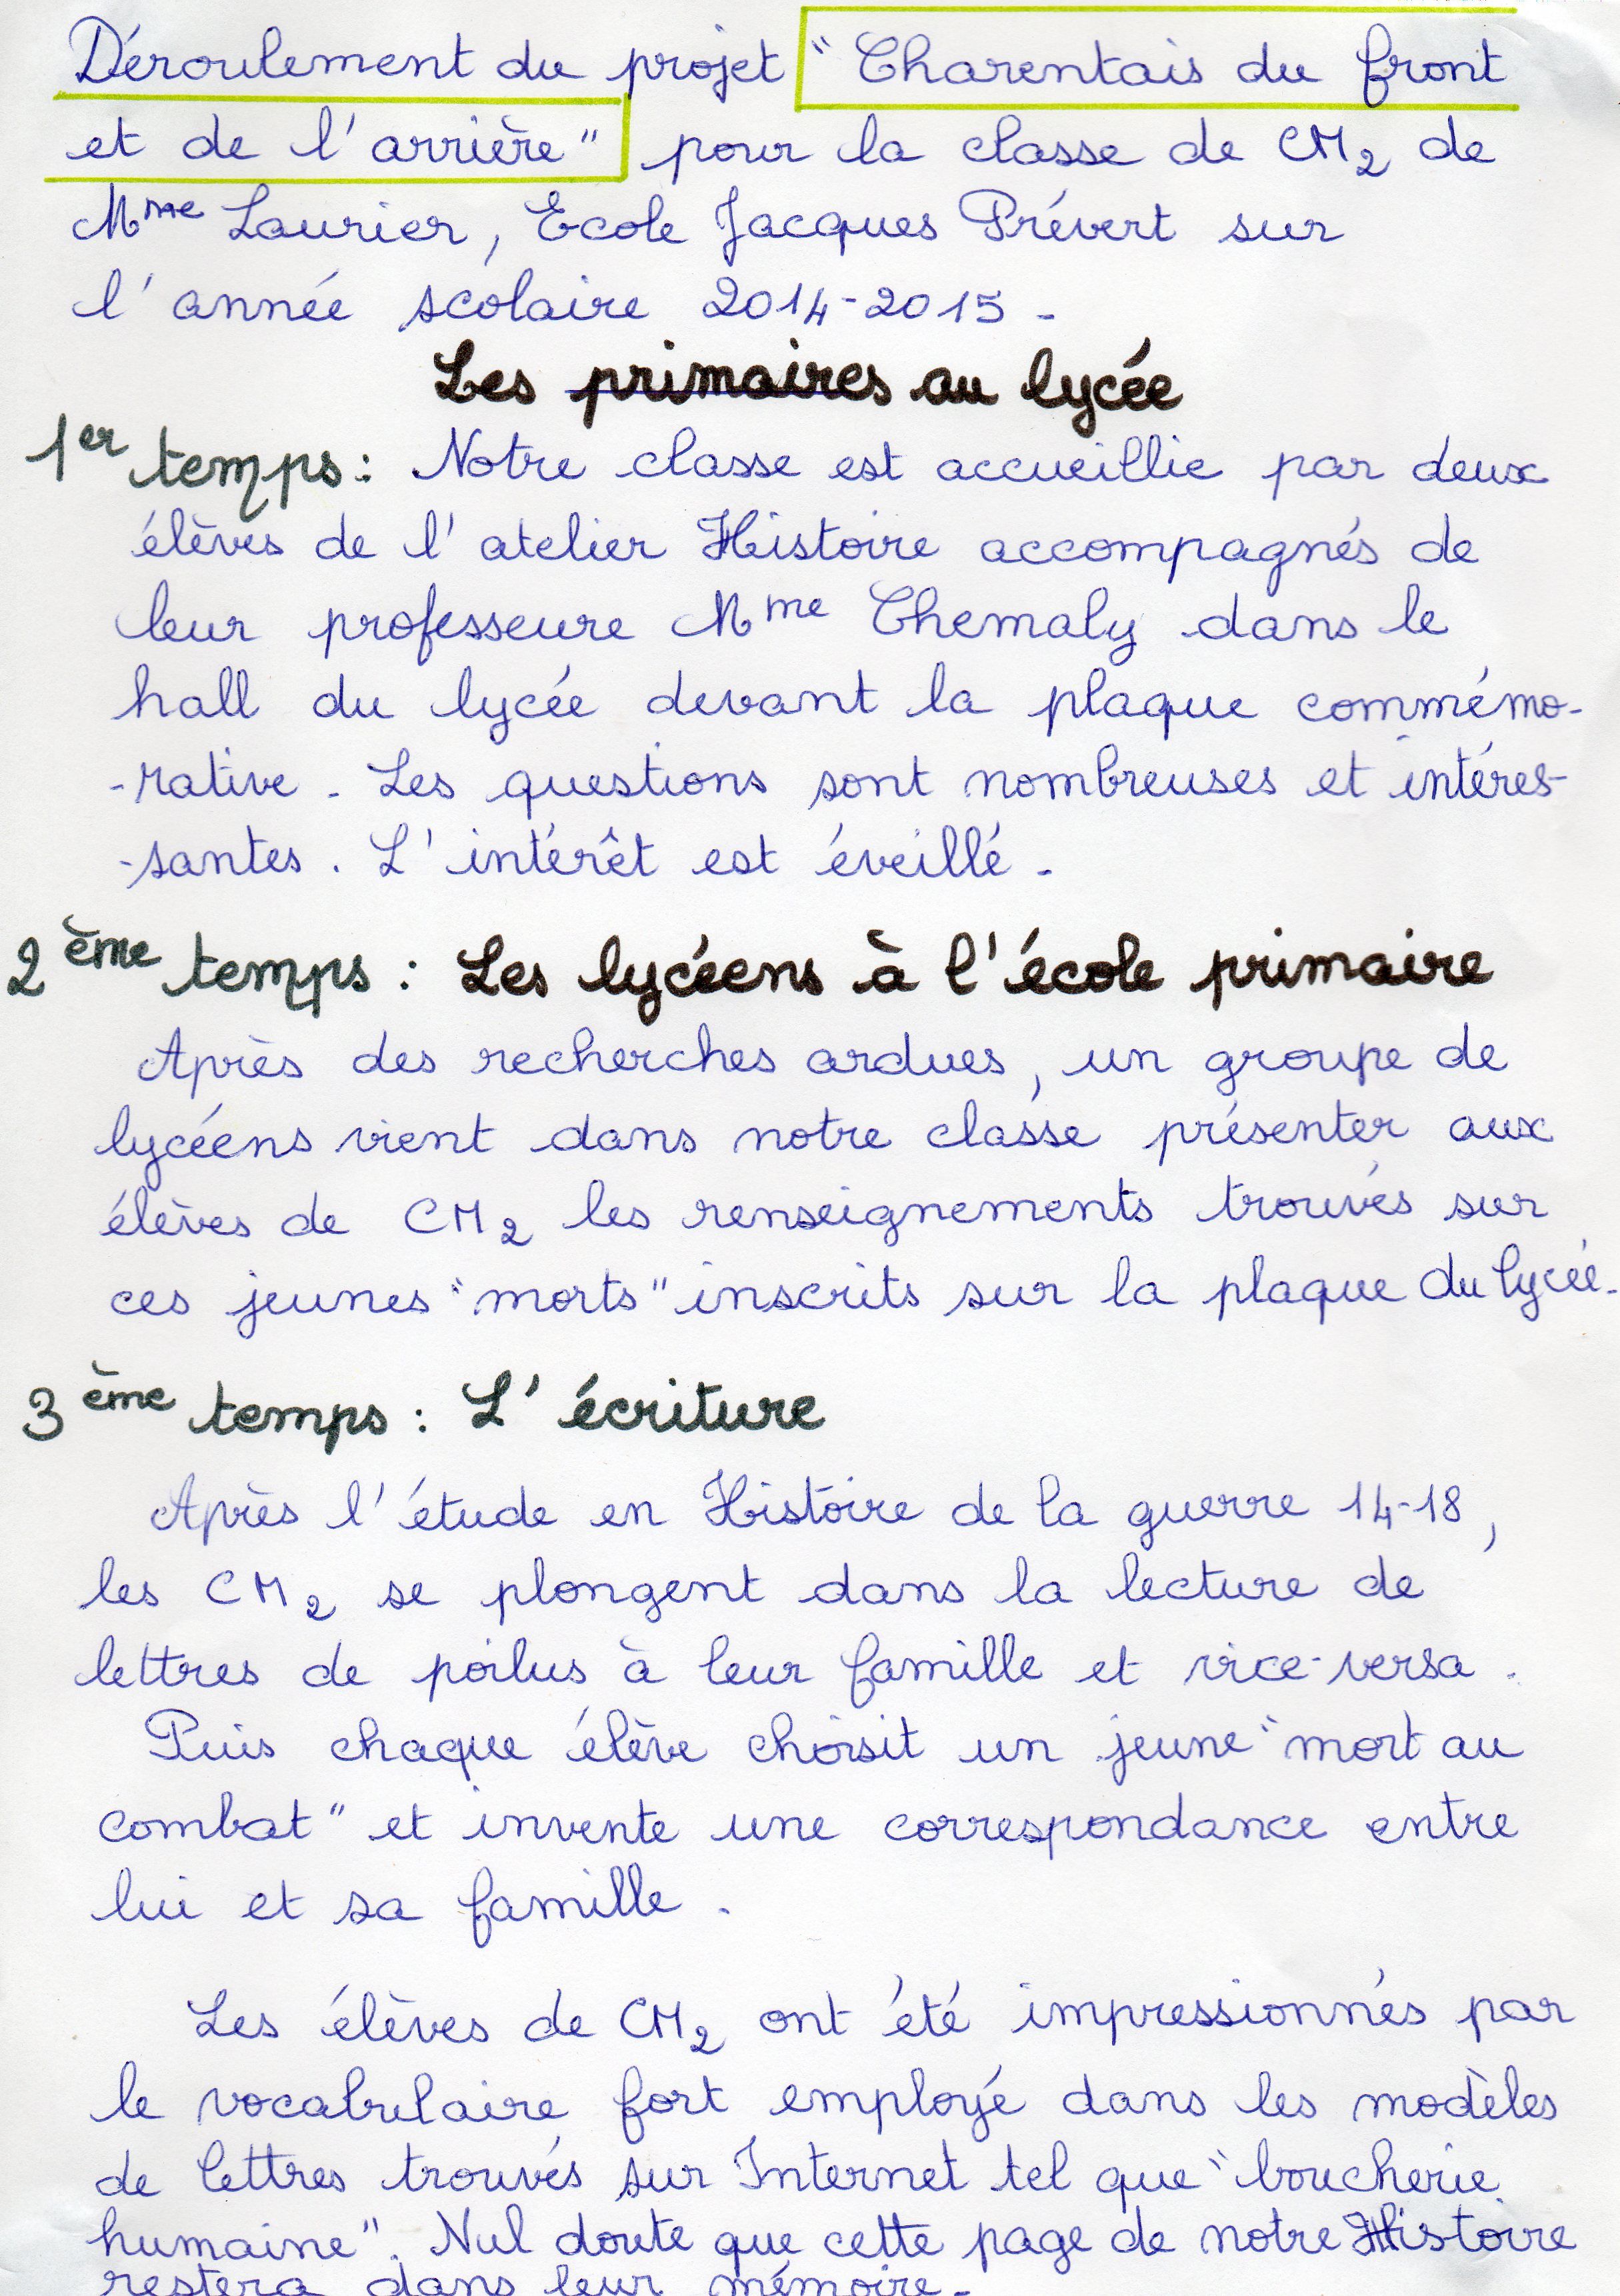 Déroulement du projet "Charentais du front
et de l'arrière" pour la classe de CM2 de
Mme Laurier, Ecole Jacques Prévert sur
l'année scolaire 2014-2015.
Les primaires au lycée
1er temps : Notre classe est accueillie par deux
élèves de l'atelier Histoire accompagnés de
leur professeure Mme Chemaly dans le
hall du lycée devant la plaque commémo-
-rative. Les questions sont nombreuses et intéres-
-santes. L'intérêt est éveillé.
2ème temps : Les lycéens à l'école primaire
Après des recherches ardues, un groupe de
lycéens vient dans notre classe présenter aux
élèves de CM2 les renseignements trouvés sur
ces jeunes "morts" inscrits sur la plaque du lycée.
3ème temps : L'écriture
Après l'étude en Histoire de la guerre 14-18,
les CM2 se plongent dans la lecture de
lettres de poilus à leur famille et vice-versa.
Puis chaque élève choisit un jeune "mort au
combat" et invente une correspondance entre
lui et sa famille.
Les élèves de CM2 ont été impressionnés par
le vocabulaire fort employé dans les modèles
de lettres trouvés sur Internet tel que "boucherie
humaine". Nul doute que cette page de notre Histoire
restera dans leur mémoire.